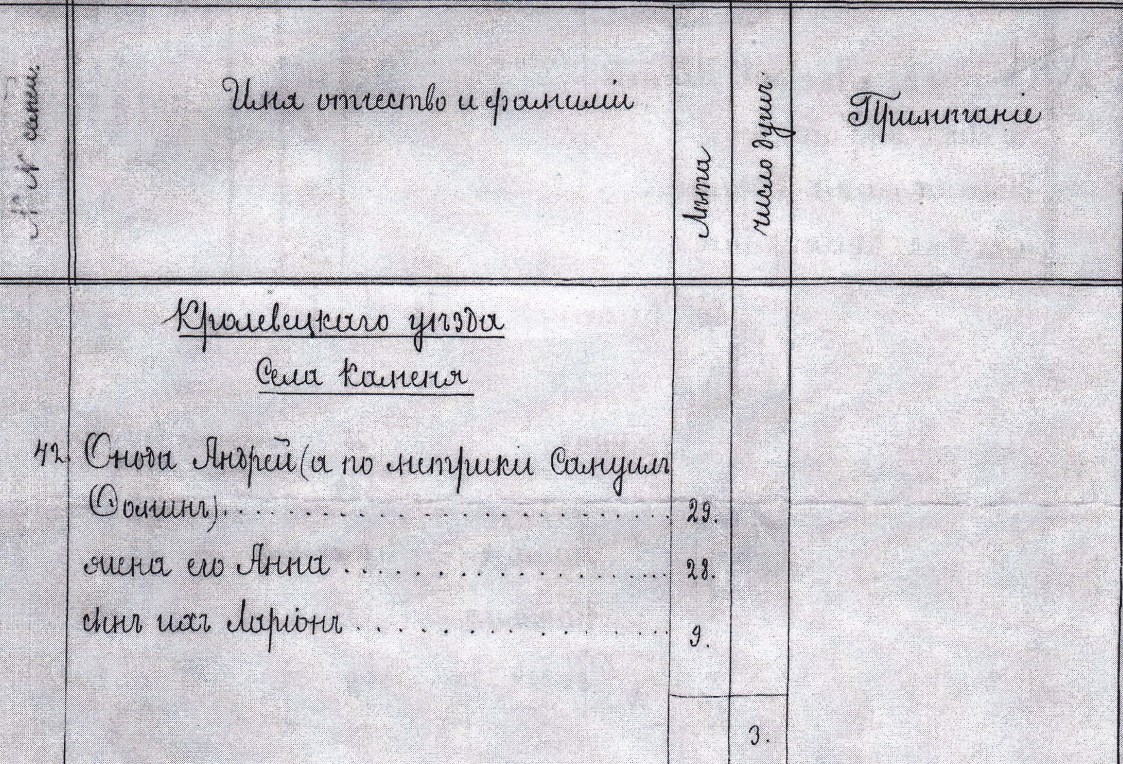 №№ семей.
Имя отчество и фамилiи
Лѣта
число душъ
Примѣчанiе
Кролевецкаго уѣзда
Села Каменя
42. Снода Андрей (а по метрики Самуилъ
Фоминъ)
29.
жена его Анна
28.
сынъ ихъ Ларiонъ
9.
3.